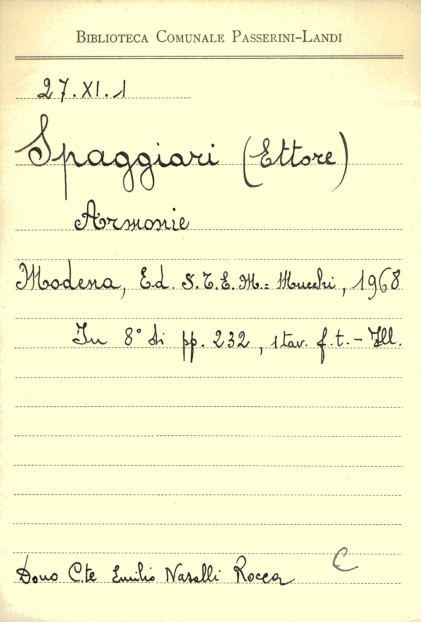 BIBLIOTECA COMUNALE PASSERINI-LANDI
27.XI.1
Spaggiari (Ettore)
Armonie
Modena, Ed. S.T.E.M.= Mucchi, 1968
In 8° di pp. 232, 1 tav. f.t. - Ill.
C
Dono C.te Emilio Nasalli Rocca